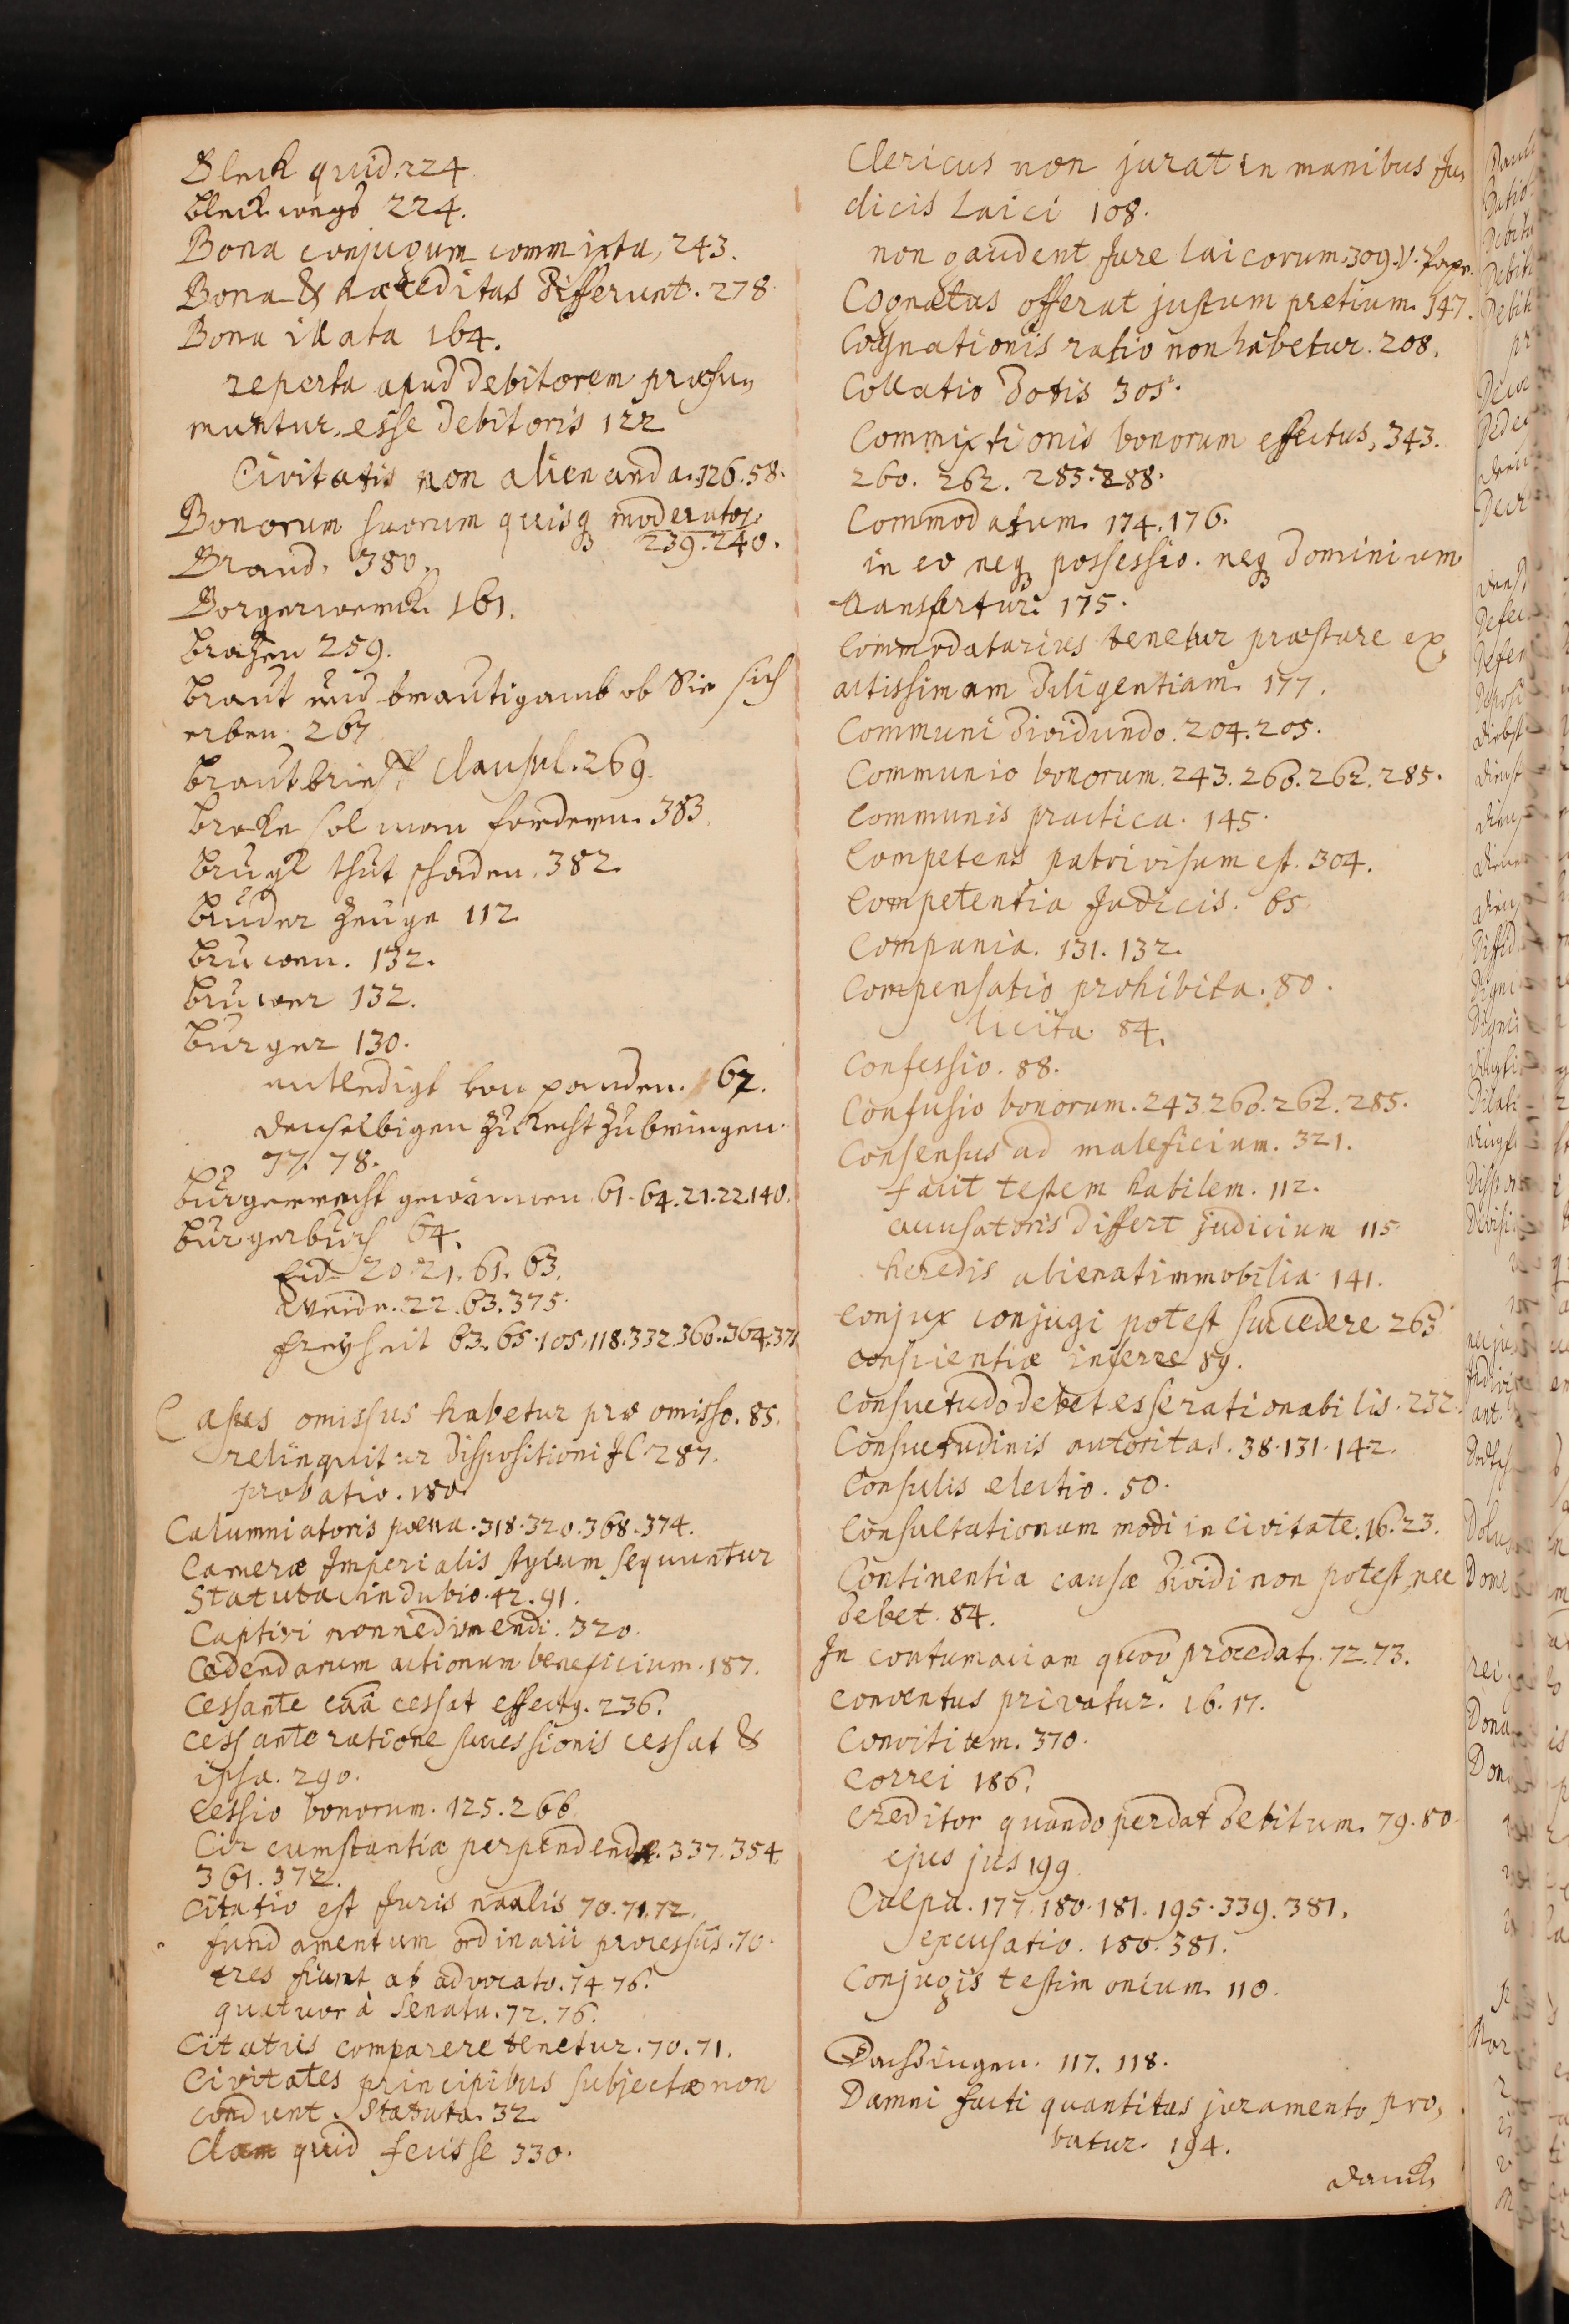 Bleck quid. 224
bleckwegs 224.
Bona conjugum commixta, 243.
Bona & haereditas differunt. 278.
Bona illata 164.
reperta apud debitorem præsu-
muntur esse debitoris 122
Civitatis non alienanda. 126. 58.
Bonorum suorum quisq moderator.
239. 240.
Brand. 380.
Borgerwerck 161.
259.
braut und brautigamb ob Sie sich
erben. 267
brautbrieff, Clausul. 269.
broke sol man fordern. 383.
thut schaden. 382.
bruder zeuge 112
bruwen. 132.
bruwer 132.
burger 130.
entledigt von panden. 67.
denselbigen zu Recht zu bringen.
77. 78.
burgerrecht gewinnen 61. 64. 21. 22. 140.
burgerbuch 64.
Eid. 20. 21. 61. 63.
Weide. 22. 63. 375.
freyheit 63. 65. 105. 118. 332. 360. 364. 371
Casus omissus habetur pro omisso. 85.
relinquitur dispositioni JC. 287.
probatio. 180.
Calumniatoris poena. 318. 320. 368. 374.
Cameræ Imperialis stylum sequuntur
Statuta in dubio. 42. 91.
Captivi non redimendi. 320.
Cedendarum actionum beneficium. 187.
Cessante caâ cessat effectq. 236.
Cessante ratione successionis cessat &
ipsa. 290.
Cessio bonorum. 125. 266.
Circumstantiæ perpendendæ. 337. 354.
361. 372.
Citatio est Juris naalis 70. 71. 72.
fundamentum ordinarii processûs. 70.
tres fiunt ab advocato. 74. 76.
quatuor à Senatu. 72. 76.
Citatus comparere tenetur. 70. 71.
Civitates principibus subjectæ non
condunt Statuta. 32.
Clam quid fecisse 330.
Clericus non jurat in manibus Ju-
dicis Laici 108.
non gaudent Jure laicorum. 309. V.
Cognatus offerat justum pretium. 147.
Cognationis ratio non habetur. 208.
Collatio Dotis 305.
Commixtionis bonorum effectus, 343.
260. 262. 285. 288.
Commodatum. 174. 176.
in eo neq possessio. neq Dominium
transfertur. 175.
Commodatarius tenetur præstare ex-
actissimam diligentiam. 177.
Communi dividundo. 204. 205.
Communio bonorum. 243. 260. 262. 285.
Communis practica. 145.
Competens patri visum est. 304.
Competentia Judicis. 65
Compania. 131. 132.
Compensatio prohibita. 80.
licita. 84.
Confessio. 88.
Confusio bonorum. 243. 260. 262. 285.
Consensus ad maleficium. 321.
facit testem habilem. 112.
accusatoris differt judicium 115.
heredis alienat immobilia. 141.
Conjux conjugi potest succedere 263
conscientiæ inferre 89.
Consuetudo debet esse rationabilis. 232.
Consuetudinis autoritas. 38. 131. 142.
Consulis electio. 50.
Consultationum modi in Civitate. 16. 23.
Continentia causæ dividi non potest, nec
debet. 84.
In contumaciam quoo procedat. 72. 73.
Conventus privatur. 16. 17.
Convitium. 370.
Correi 186.
Creditor quando perdat debitum. 79. 80.
ejus jus 199.
Culpa. 177. 180. 181. 195. 339. 381.
excusatio. 180. 381.
Conjugis testimonium. 110.
117. 118.
Damni facti quantitas juramento pro-
batur. 194.